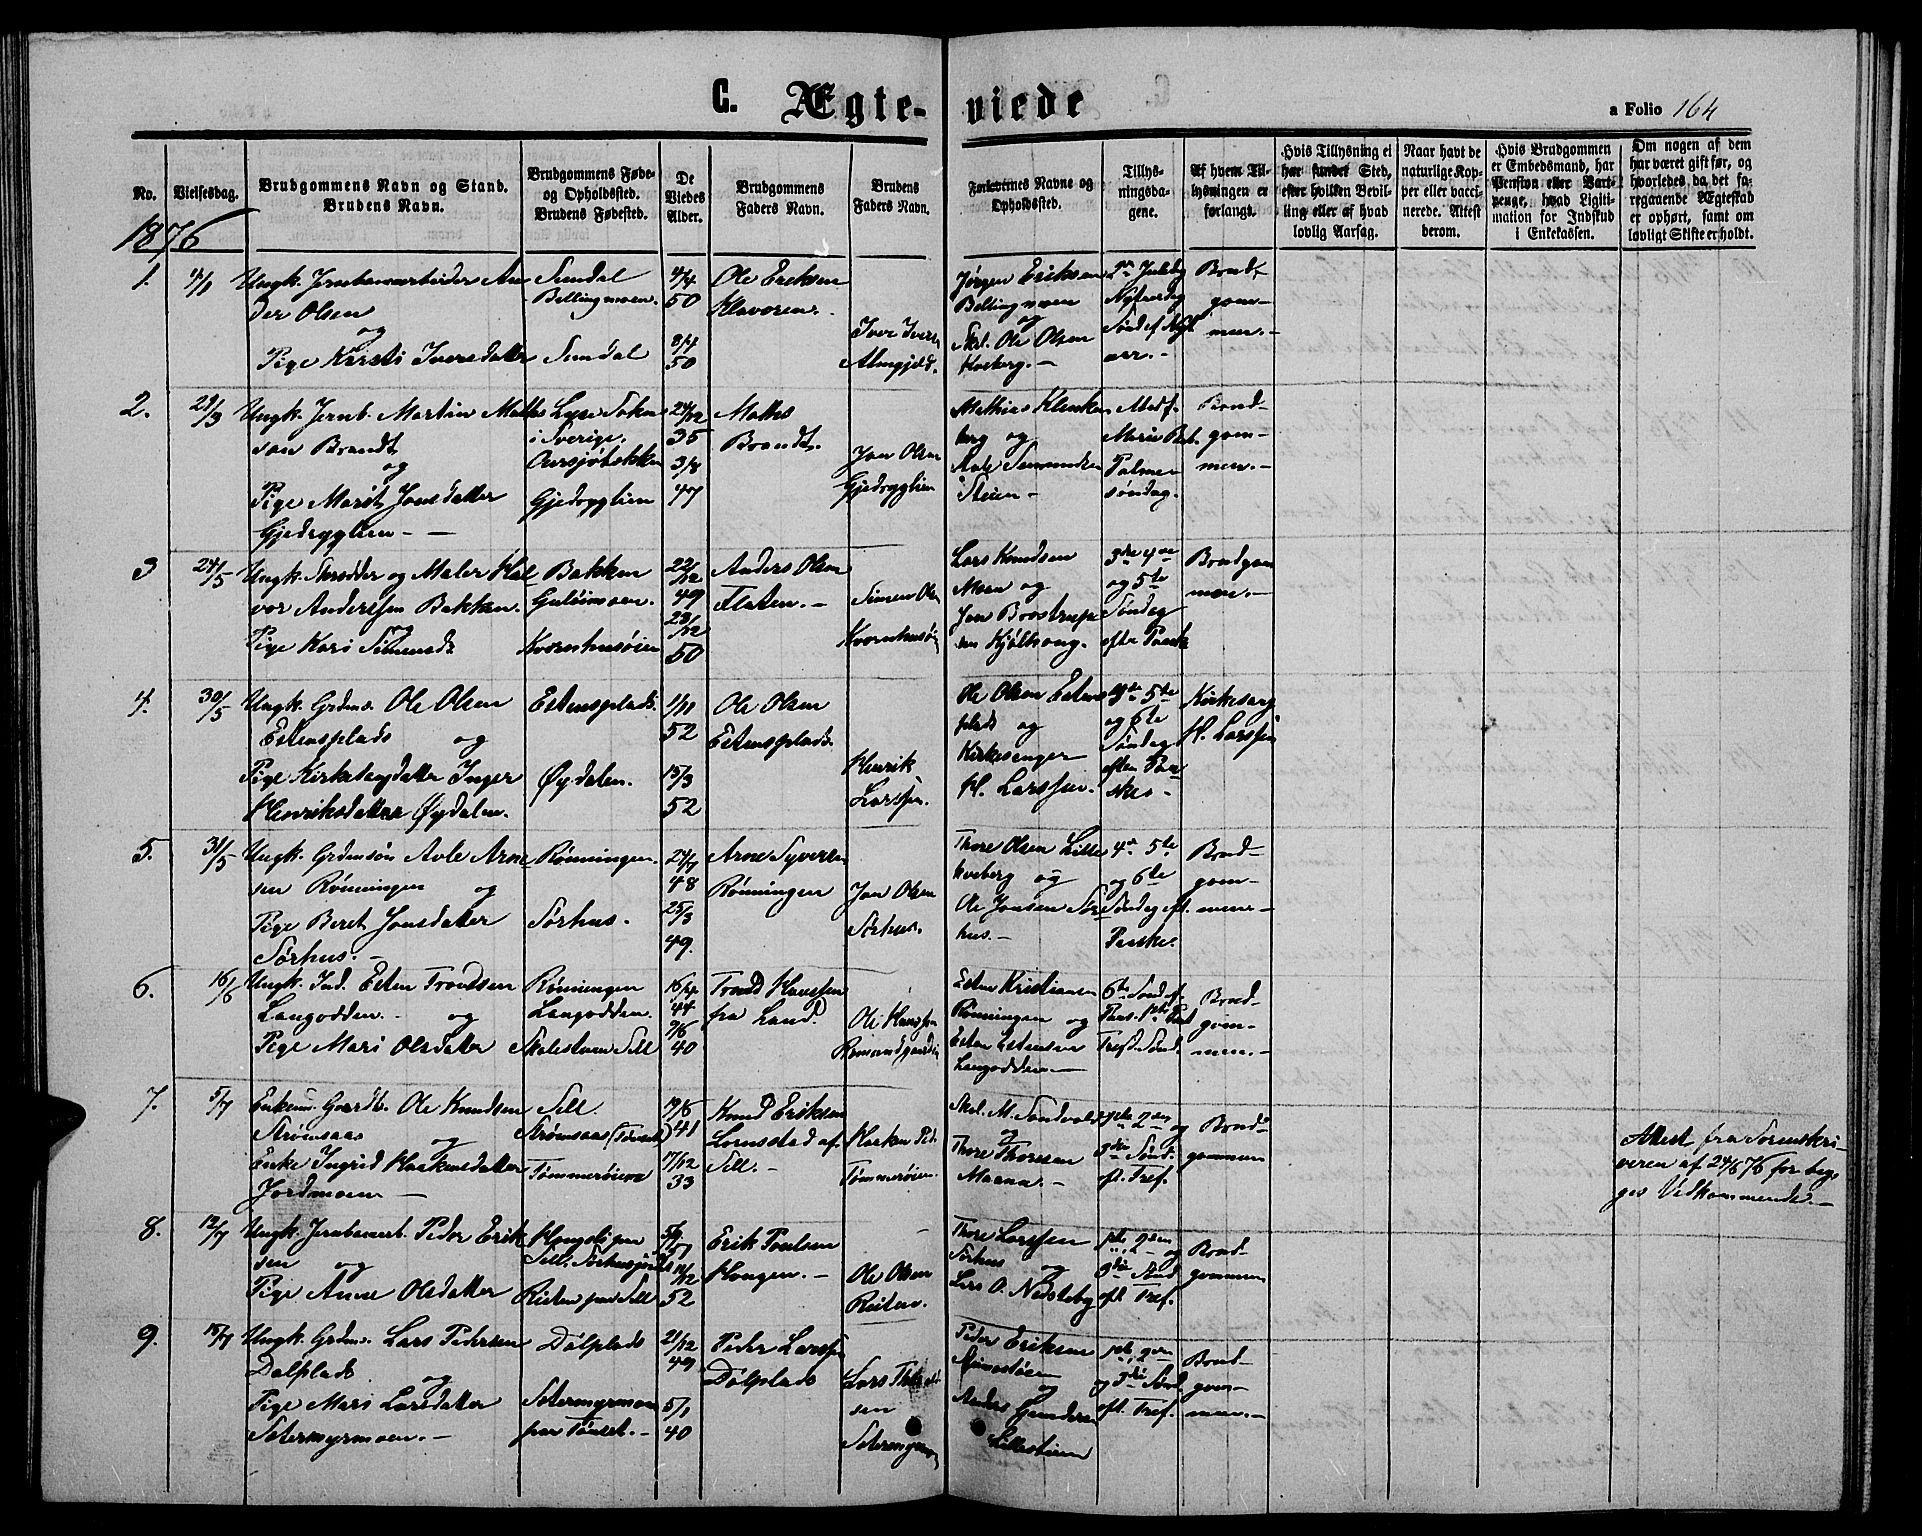 C. Ægte-viede
a Folio 164
No.
Vielsesdag.
Brudgommens Navn og Stand.
Brudens Navn.
Brudgommens Føde-
og Opholdssted.
Brudens Fødested.
De
Viedes
Alder.
Brudgommens
Faders Navn.
Brudens
Faders Navn.
Forlovernes Navne og
Opholdssted.
Tillys-
ningsda-
gene.
Af hvem Til-
lysningen er
forlangt.
Hvis Tillysning ei
har fundet Sted,
efter hvilken Bevil-
ling eller af hvad
lovlig Aarsag.
Naar havt de
naturlige Kop-
per eller vacci-
nerede. Attest
derom.
Hvis Brudgommen
er Embedsmand, har
Pension eller Vart-
penge, hvad Ligiti-
mation for Indskud
i Enkekassen.
Om nogen af dem
har været gift før, og
hvorledes da det fo-
regaaende Ægteskab
er ophørt, samt om
lovligt Skifte er holdt.
1876
1.
4/1
Ungk. Jernbanearbeider An
der Olsen
og
Pige Kirsti Iversdatter
Sundal
Bellingmoen.
Sundal
4/4
50
8/7
50
Ole Eriksen
Klevoren.
Iver Ivers
Almgjeld.
Jørgen Eriksen
Bellingmoen
og
Skl. Ole Olsen
Kveberg.
2den Juledag
Nytaarsdag
Brud-
gom-
men.
2.
21/3
Ungk. Jernb. Martin Mattes
son Brandt
og
Pige Marit Jonsdatter
Gjedrygglien
Lyse Sokn
i Sverige.
Aursjøbakken
Gjedrygglien
24/12
35
3/8
47
Mattes
Brandt.
Jon Olsen
Gjedrygglien
Mathias Klenken
berg og
Steien
Marie Beb.
Palme
søndag.
Brud-
gom-
men.
3
24/5
Ungk. Skrædder og Maler Hal
vor Anderssen Bakken.
og
Pige Kari Simensdr
Bakken
Guløimoen.
Kvernhusøien
22/12
49
23/12
50
Anders Olsen
Flaten.
Simen Olsen
Kvernhusøi
Lars Knudsen
Moen og
3die 4de
og 5te
Søndag
efter Paask
Brudgom
men.
4.
30/5
Ungk. Grdms. Ole Olsen
Estensplads og
Pige Kirkesangdatter Inger
Henriksdatter Øydalen.
Estensplads.
Øydalen.
1/11
52
15/3
52
Ole Olsen
Estensplads.
Henrik
Larssen.
Ole Olsen Estens
plads og
Kirkesanger
H. Larssen.
4de 5te
og 6te
Søndag
efter Paa
ske
Kirkesang
H. Larssen
5.
31/5
Ungk. Grdmsøn Avle Arne
sen Rønningen og
Pige Beret Jonsdatter
Sørhus.
Rønningen.
Sørhus.
24/7
48
25/3
49.
Arne Syvers
Rønningen
Jon Olsen
Sørhus.
Thore Olsen Lille
kveberg og
Ole Jonsen Sør
hus.
4de 5te
og 6te
Søndag eft.
Paaske.
Brud-
gom-
men
6.
16/6
Ungk. Ind. Esten Trondsen
Langodden. og
Pige Mari Olsdatter
Rønningen
Langodden.
Skalestuen Sell
16/4
44
9/6
40
Trond Hanssen
fra Land.
Ole Hanssen
Romundgaarden
Esten Kristiansen
Rønningen og
Esten Estensen
Langodden
Brud-
gom-
men.
7.
5/7
Enkem. Gaardb. Ole Knudsen
Strømsaas
og
Enke Ingrid Haakensdatter
Jordmoen
Sell.
Strømsaas (Tønset)
Tømmerøien
19/6
41
17/12
33
Knud Eriksen
Lornsstad af
Sell.
Haaken Ped.
Tømmerøien.
Skl. M. Sandvold
og
Thore Thoresen
Moene.
1ste 2den og
3die Sønd.
eft. Tref.
Brud-
gommen
Attest fra Sorenskri
veren af 24/6 76 for beg
ges Vedkommende.
8.
12/7
Ungk. Jernbanearb. Peder Erik
sen og
Pige Anne Olsdatter
Sell. Sørhusjordet
Reiten paa Sell
5/9
51
11/12
52
Erik Poulsen
Haugen.
Ole Olsen
Reiten.
Thore Larssen
Sørhus
og
Lars O. Nedsteby
1ste 2den og
3die Sønd
eft Tref.
Brud-
gommen
9.
15/7
Ungk. Grdms. Lars Pedersen
Dalplads
og
Pige Mari Larsdatter
Setermyrmoen.
Dalplads
Setermyrmoen
paa Tønset.
21/12
49
5/1
40
Peder Larssen
Dalplads
sen
Setermyrmoen
Peder Eriksen
og
Lillesteien
1ste 2den
og 3die Sønd.
eft. Tref.
Brud-
gom-
men.